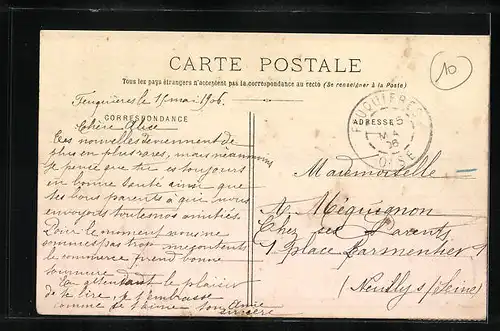 CARTE POSTALE
Tous les pays étrangers n'acceptent pas la correspondance au recto (Se renseigner à la Poste)
10
Feuquières le 15 mai 1906.
CORRESPONDANCE
ADRESSE
FEUQUIÈRES
OISE
Chère Alice
Tes nouvelles deviennent de
plus en plus rares, mais néanmoins
je pense que tu es toujours
en bonne santé ainsi que
tes bons parents à qui nous
envoyons toutes nos amitiés.
Pour le moment nous ne
sommes pas trop mécontents
le commerce prend bonne
tournure
En attendant le plaisir
de te lire, je t'embrasse
comme je t'aime ton amie
sincère
Mademoiselle
A. Méquignon
Chez ses Parents
1 place Parmentier 1
(Neuilly s/Seine)